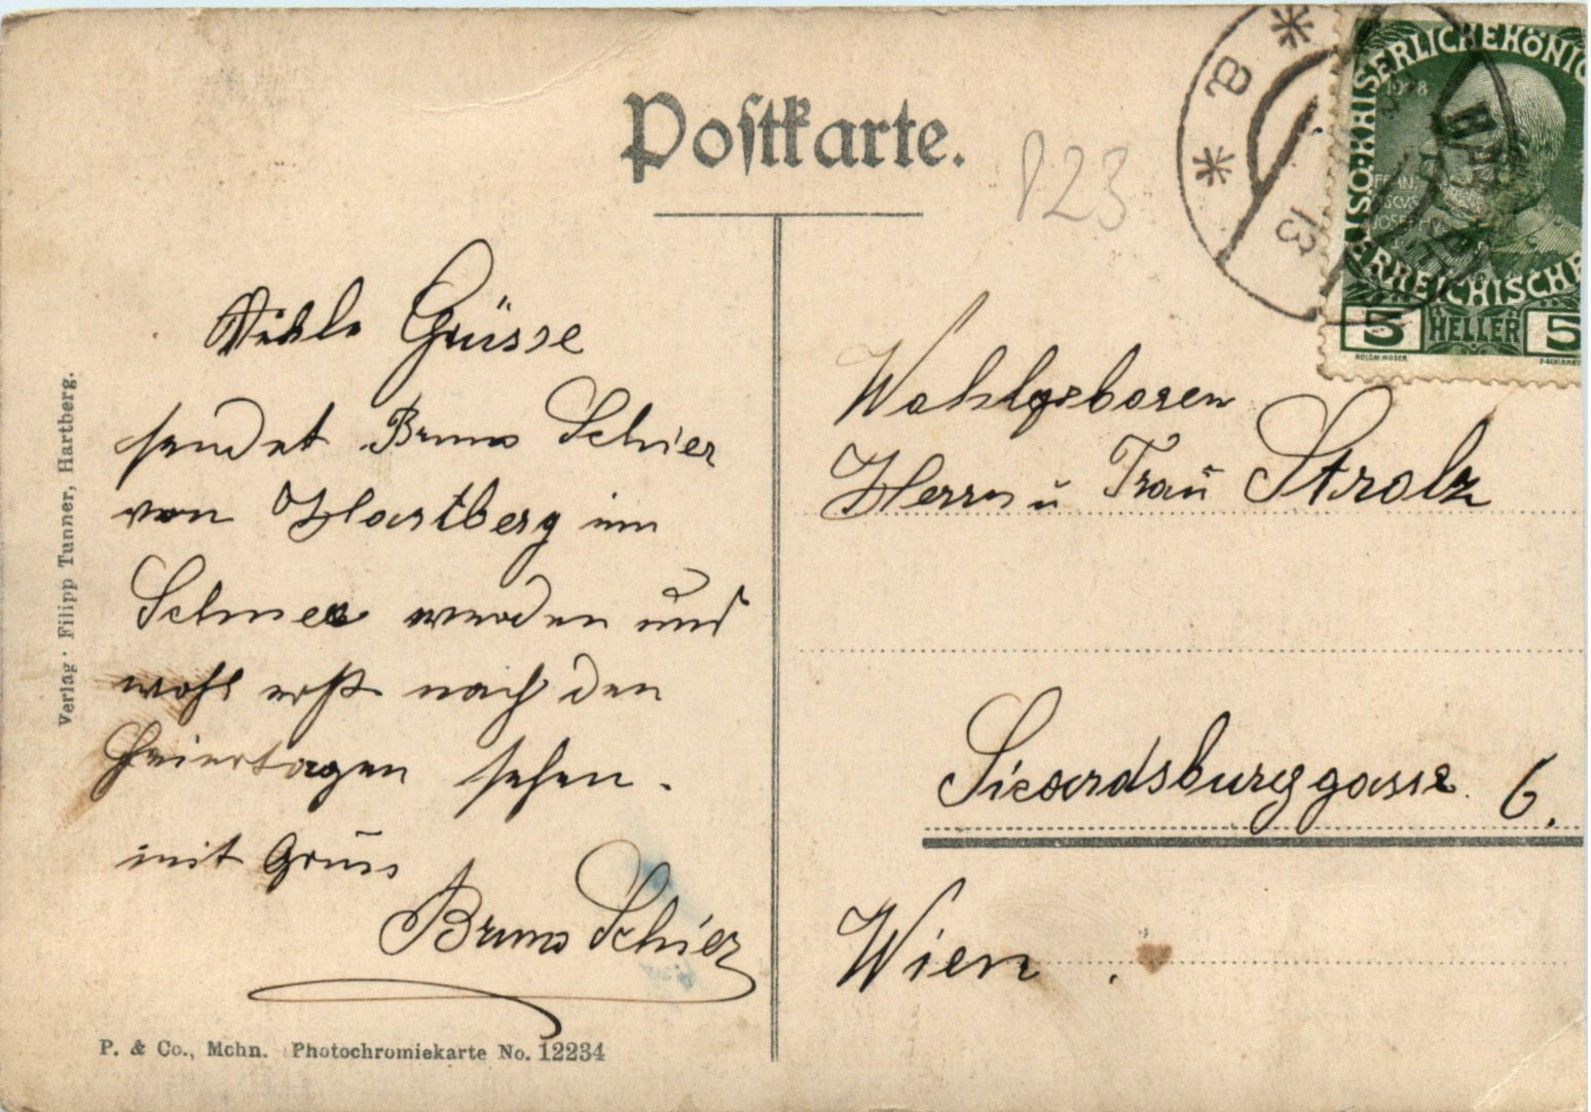 Postkarte.
P23
KAISERLICHE KÖNIGL
1908
FRAN
CISCVS
JOSEPH
ÖSTERREICHISCHE
5 HELLER 5
* B *
13
Viele Grüsse
sendet Bruno Schier
von Hartberg im
Schnee werden und
wohl erst nach den
Feiertagen sehen.
mit Gruss
Bruno Schier
Wohlgeboren
Herrn u Frau Strolz
Sicardsburggasse 6.
Wien.
Verlag · Filipp Tunner, Hartberg.
P. & Co., Mchn. Photochromiekarte No. 12234